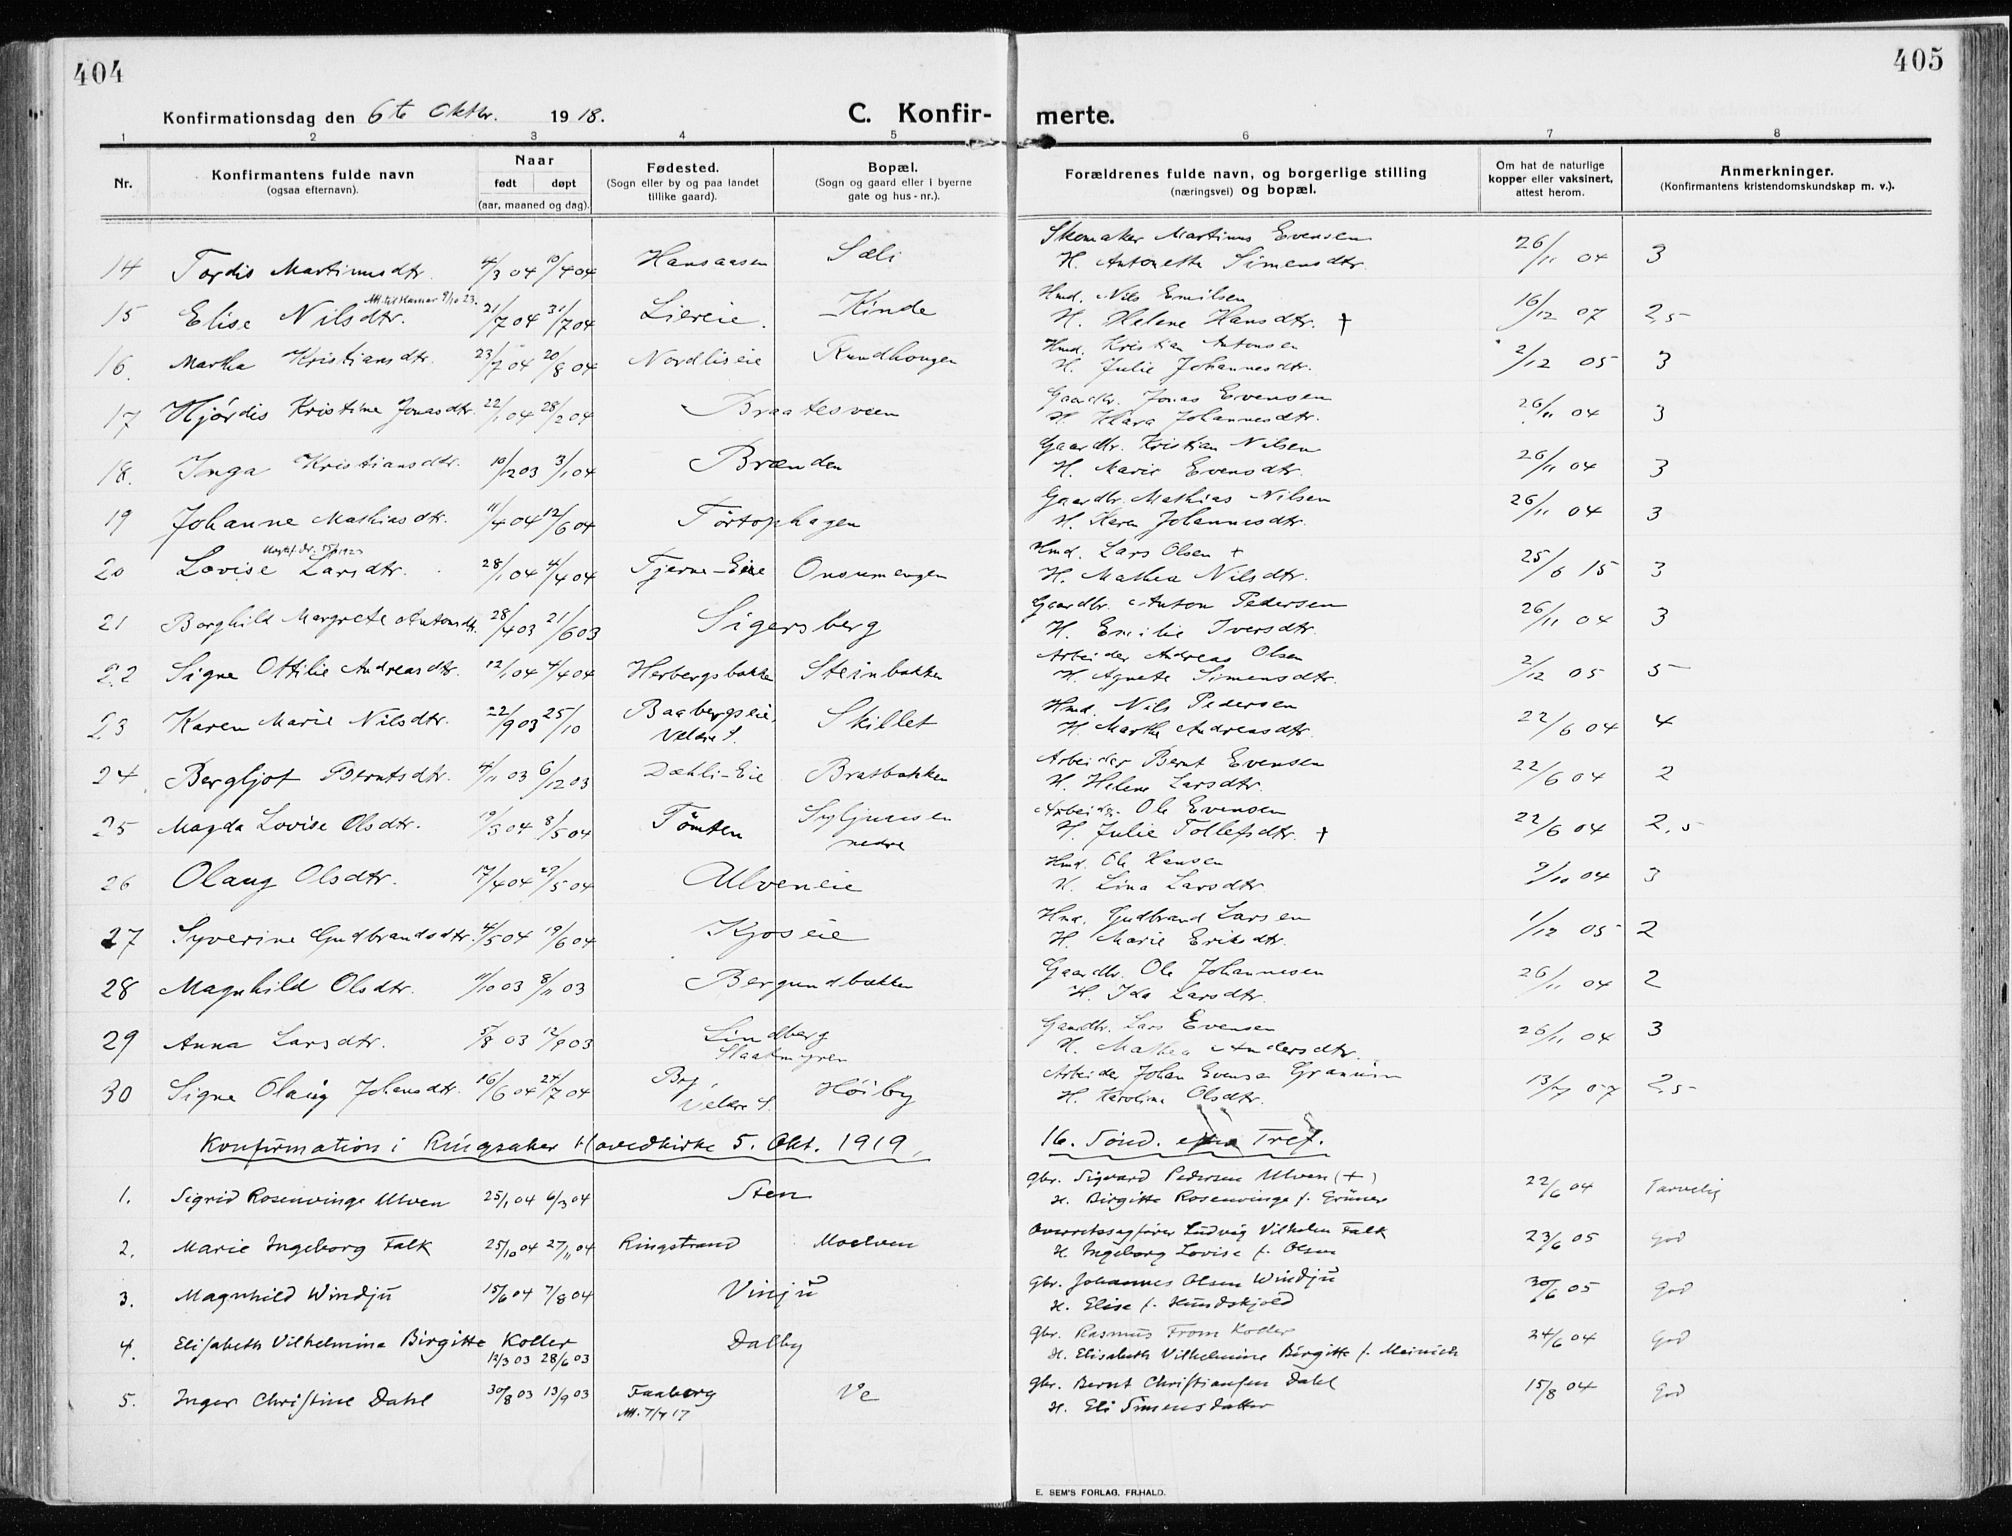 404
405
Konfirmationsdag den 6te Oktbr. 1918.
C. Konfir-
merte.
1 2 3 4 5 6 7 8
Nr.
Konfirmantens fulde navn
(ogsaa efternavn).
Naar
født døpt
(aar, maaned og dag).
Fødested.
(Sogn eller by og paa landet
tillike gaard).
Bopæl.
(Sogn og gaard eller i byerne
gate og hus-nr.).
Forældrenes fulde navn, og borgerlige stilling
(næringsvei) og bopæl.
Om hat de naturlige
kopper eller vaksinert,
attest herom.
Anmerkninger.
(Konfirmantens kristendomskundskap m. v.).
14 Tordis Martinusdtr. 4/3 04 10/4 04 Hansaasen Sæli Skomaker Martinus Evensen
H. Antonette Simensdtr. 26/11 04 3
Att. til Hamar 9/10 23.
15 Elise Nilsdtr. 21/7 04 31/7 04 Liereie. Kinde Hmd. Nils Emilsen
H. Helene Hansdtr. † 16/12 07 2,5
16. Martha Kristiansdtr. 23/7 04 20/8 04 Nordliseie Rundhougen Hmd. Kristian Antonsen
H. Julie Johannesdtr. 2/12 05 3
17 Hjørdis Kristine Jonasdtr. 22/1 04 28/2 04 Braatesveen Gaardbr. Jonas Evensen
H. Klara Johannesdtr. 26/11 04 3
18. Inga Kristiansdtr. 10/12 03 3/1 04 Brænden Gaardbr. Kristian Nilsen
H. Marie Evensdtr. 26/11 04 3
19 Johanne Mathiasdtr. 11/4 04 12/6 04 Törtophagen Gaardbr. Mathias Nilsen
H. Karen Johannesdtr. 26/11 04 3
20 Lovise Larsdtr. 28/1 04 4/4 04 Tjerne-Eie Onsumengen Hmd. Lars Olsen +
H. Mathea Nilsdtr. 25/6 15 3
21 Borghild Margrete Antonsdtr. 28/4 03 21/6 03 Sigersberg Gaardbr. Anton Pedersen
H. Emilie Iversdtr. 26/11 04 3
22 Signe Ottilie Andreasdtr. 12/1 04 4/4 04 Herbergsbakken Steinbakken Arbeider Andreas Olsen
H. Agnete Simensdtr. 2/12 05 5
23 Karen Marie Nilsdtr. 22/9 03 25/10 Baabergseie, Veldre S. Skillet Hmd. Nils Pedersen
H. Marthe Andreasdtr. 22/6 04 4
24 Bergljot Berntsdtr. 4/11 03 6/12 03 Dæhli-Eie Bratbakken Arbeider Bernt Evensen
H. Helene Larsdtr. 22/6 04 2
25 Magda Lovise Olsdtr. 19/3 04 8/5 04 Tömten Syljuaasen nedre Arbeider Ole Evensen
H. Julie Tollefsdtr. † 22/6 04 2,5
26 Olaug Olsdtr. 17/4 04 29/5 04 Ulveneie Hmd. Ole Hansen
H. Lina Larsdtr. 9/10 04 3
27 Syverine Gudbrandsdtr. 4/5 04 19/6 04 Kjoseie Hmd. Gudbrand Larsen
H. Marie Eriksdtr. 1/12 05 2
28 Magnhild Olsdtr. 11/10 03 8/11 03 Bergundbakken Gaardbr. Ole Johannesen
H. Ida Larsdtr. 26/11 04 2
29 Anna Larsdtr. 5/8 03 12/9 03 Lindberg
Slaatmyren Gaardbr. Lars Evensen
H. Mathea Andersdtr. 26/11 04 3
30 Signe Olaug Johansdtr. 16/6 04 24/7 04 Veldre S. Höiby Arbeider Johan Evensen
H. Karoline Olsdtr. 13/7 07 2,5
Konfirmation i Ringsaker Hovedkirke 5. Okt. 1919. 16. Sönd. Tref.
1. Sigrid Rosenvinge Ulven 25/1 04 6/3 04 Sten Gbr. Sigvard Pedersen Ulven (+)
H. Birgitte Rosenvinge f. Grüner 22/6 04 Tarvelig
2. Marie Ingeborg Falk 25/10 04 27/11 04 Ringstrand Moelven Overretssagfører Ludvig Vilhelm Falk
H. Ingeborg Lovise f. Olsen 23/6 05 God
3. Magnhild Windju 15/6 04 7/8 04 Vinju Gbr. Johannes Olsen Windju
H. Elise f. Hundskjold 30/6 05 God
4. Elisabeth Vilhelmine Birgitte Koller
12/3 03 28/6 03 Dalby Gbr. Rasmus From Koller
H. Elisabeth Vilhelmine Birgitte f. Meinich 24/6 04 God
5. Inger Christine Dahl 30/8 03 13/9 03 Faaberg
Att. 7/7 17 Ve Gbr. Bernt Christiansen Dahl
H. Eli Simensdatter 15/8 04 God
E. SEM'S FORLAG, FR.HALD.